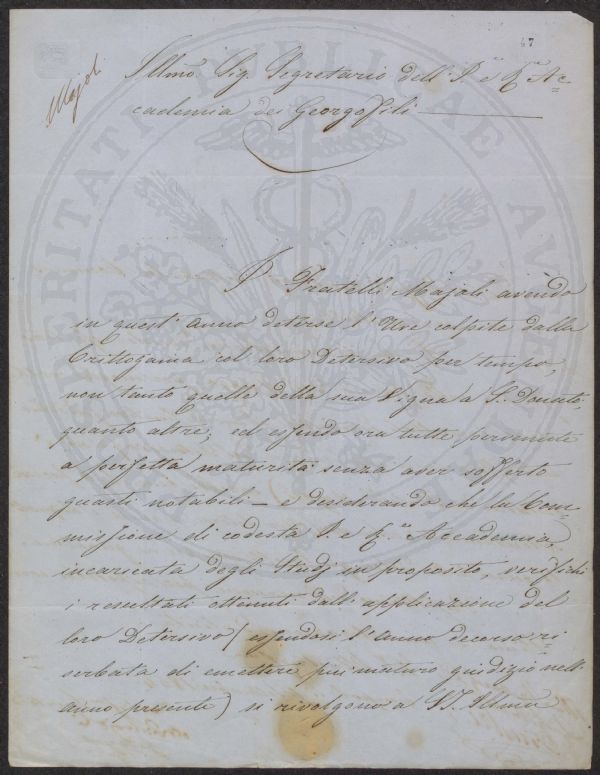 47
Majoli
Illmo Sig. Segretario dell' I. e R. Ac=
cademia dei Georgofili
I Fratelli Majoli avendo
in quest'anno deterse l'Uve colpite dalla
Crittogama col loro Detersivo per tempo,
non tanto quelle della sua Vigna a S. Donato,
quanto altre; ed essendo ora tutte pervenute
a perfetta maturità senza aver sofferto
guasti notabili – e desiderando che la Com=
missione di codesta I. e R. Accademia,
incaricata degli Studj in proposito, verifichi
i resultati ottenuti dall'applicazione del
loro Detersivo (essendosi l'anno decorso ri=
serbata di emettere più maturo giudizio nell'
anno presente) si rivolgono a V.S. Illma
PROSPERITATI PUBLICAE AUGENDAE